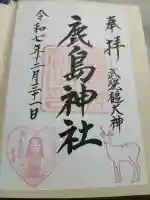 奉拝
武甕槌大神
鹿島神社
令和七年二月二十一日